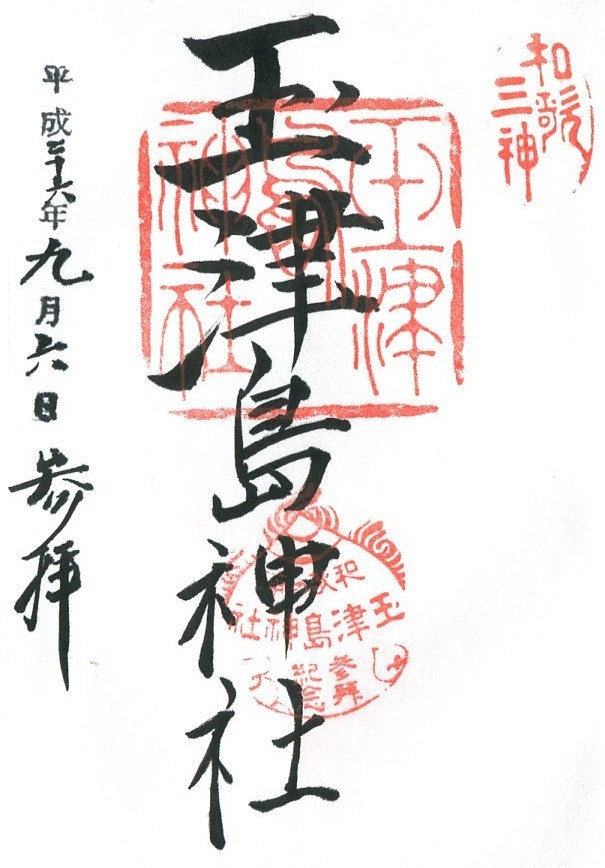 和歌三神
玉津島神社
玉津島神社
玉津島神社
参拝
紀念
平成二十六年九月六日参拝